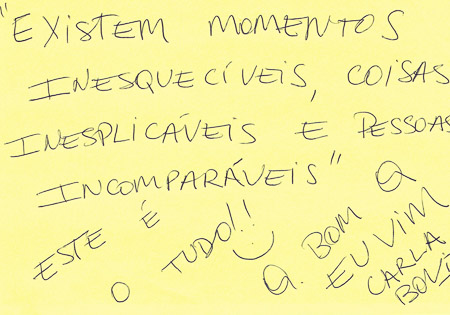 "EXISTEM MOMENTOS
INESQUECÍVEIS, COISAS
INESPLICÁVEIS E PESSOAS
INCOMPARÁVEIS"
ESTE É
O TUDO!!
Q. BOM Q
EU VIM
CARLA